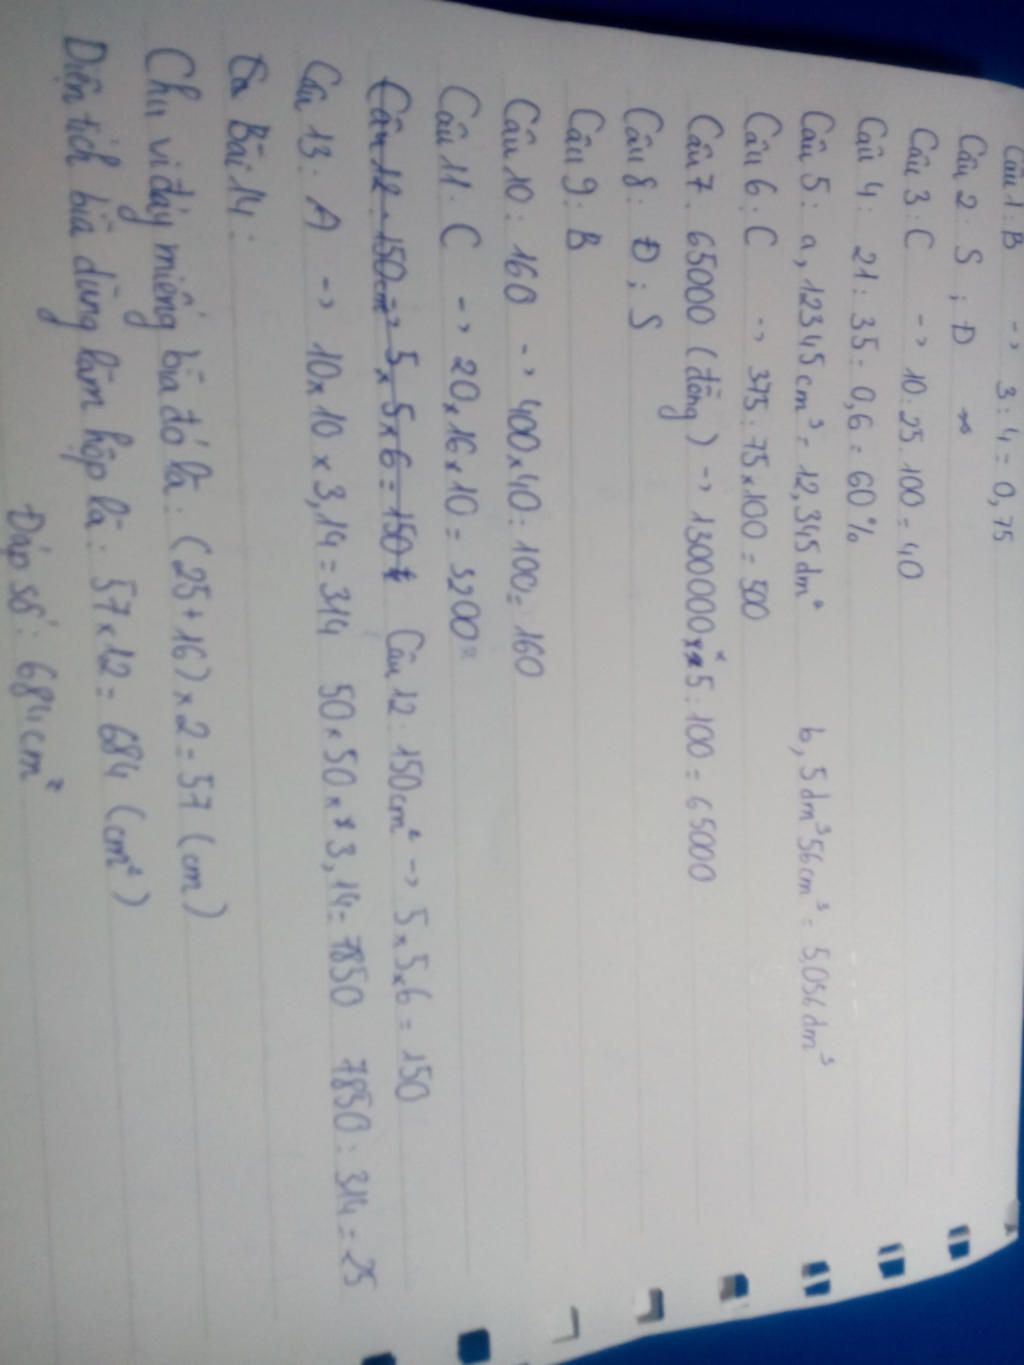 Câu 1: B -> 3 : 4 = 0,75
Câu 2: S ; Đ
Câu 3: C -> 10 : 25 . 100 = 40
Câu 4: 21 : 35 = 0,6 = 60%
Câu 5: a, 12345cm³ = 12,345dm³ b, 5dm³56cm³ = 5,056dm³
Câu 6: C -> 375 : 75 x 100 = 500
Câu 7: 65000 (đồng) -> 1300000 x 5 : 100 = 65000
Câu 8: Đ ; S
Câu 9: B
Câu 10: 160 -> 400 x 40 : 100 = 160
Câu 11: C -> 20 x 16 x 10 = 3200
Câu 12. 150cm² -> 5 x 5 x 6 = 150 Câu 12: 150cm² -> 5 x 5 x 6 = 150
Câu 13: A -> 10 x 10 x 3,14 = 314 50 x 50 x 3,14 = 7850 7850 : 314 = 25
Bài 14:
Chu vi đáy miếng bìa đó là: (25 + 16) x 2 = 57 (cm)
Diện tích bìa dùng làm hộp là: 57 x 12 = 684 (cm²)
Đáp số: 684cm²